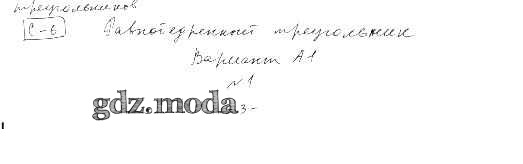 треугольников
С-6 Равнобедренный треугольник
Вариант А1
№1
gdz.moda
3-